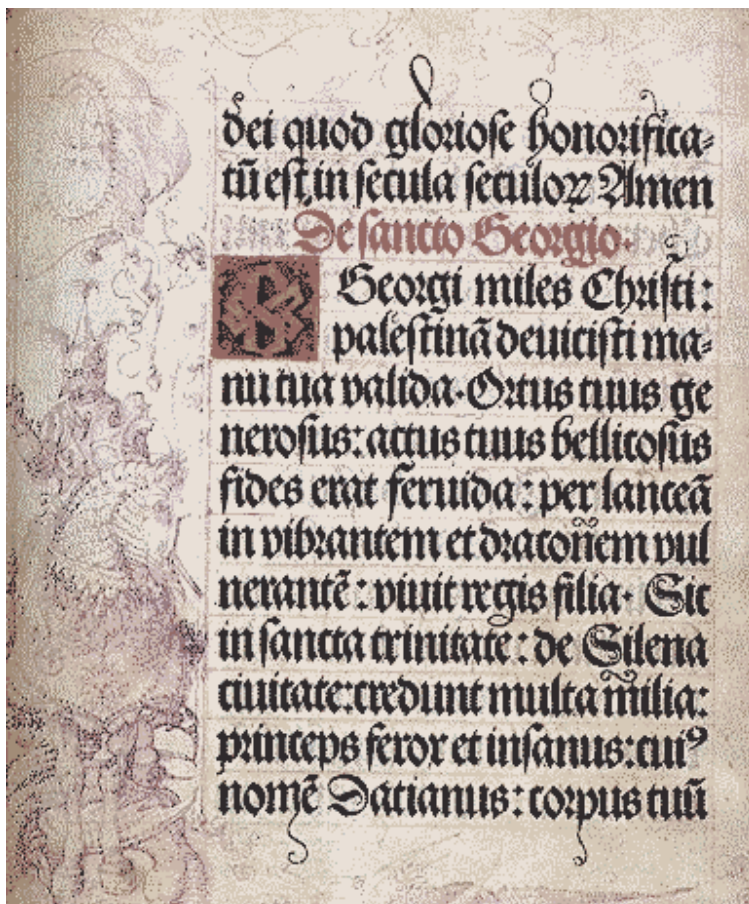 dei quod glorioſe honorifica⸗
tū eſt in ſecula ſeculoꝝ Amen
De ſancto Georgio.
Georgi miles Chriſti:
paleſtinā deuiciſti ma⸗
nu tua valida. Ortus tuus ge
neroſus: actus tuus bellicoſus
fides erat feruida: per lanceā
in vibrantem et draconem vul
nerantē: viuit regis filia. Sic
in ſancta trinitate: de Silena
ciuitate: credunt multa milia:
princeps ferox et inſanus: cuiꝰ
nomē Datianus: corpus tuū